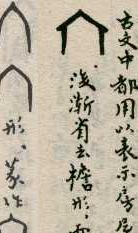 古文中都用以表示房屋
後漸省去檐形、
形、篆作